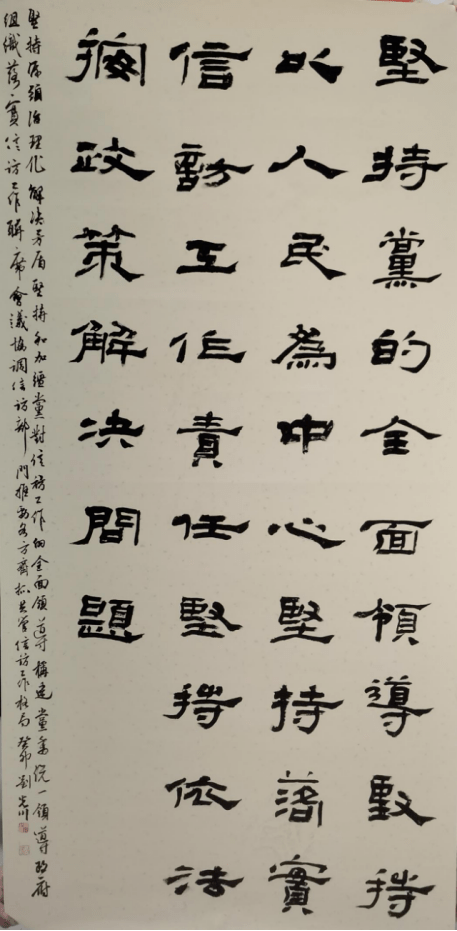 堅持黨的全面領導堅持
以人民為中心堅持落實
信訪工作責任堅持依法
按政策解决問題
堅持源頭治理化解决矛盾堅持和加强黨對信訪工作的全面領導構建黨委統一領導政府
組織落實信訪工作聯席會議協調信訪部門推動各方齊抓共管信訪工作格局癸卯劉光川